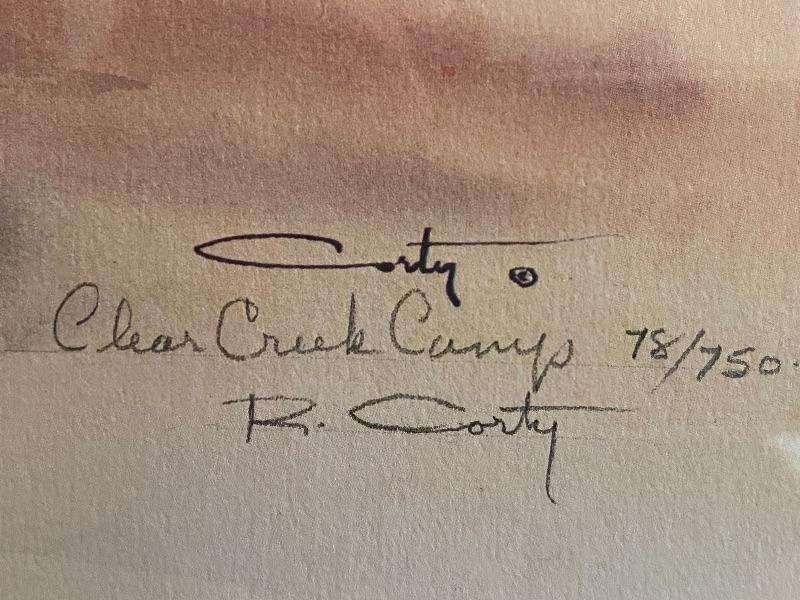 Corty ©
Clear Creek Camp 78/750.
R. Corty